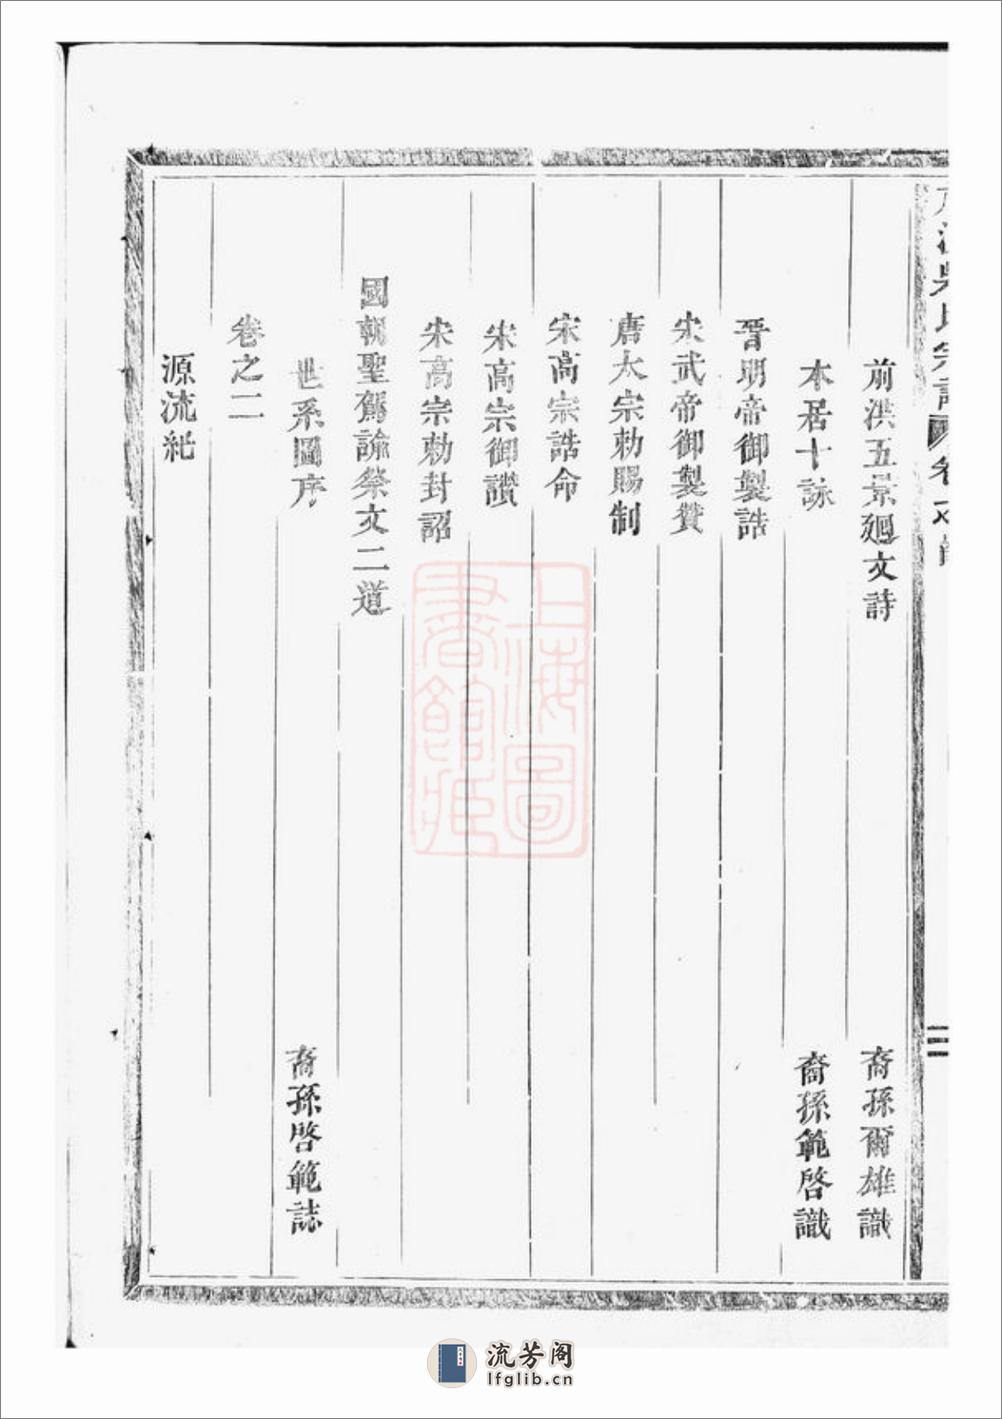 吳氏宗譜 卷之首 三
前洪五景廻文詩 裔孫爾雄識
本居十詠 裔孫範啓識
晉明帝御製誥
宋武帝御製贊
唐太宗勅賜制
宋高宗誥命
宋高宗御讃
宋高宗勅封詔
國朝聖駕諭祭文二道
世系圖序 裔孫啓範誌
卷之二
源流紀
上海圖書館藏
流芳阁
lfglib.cn